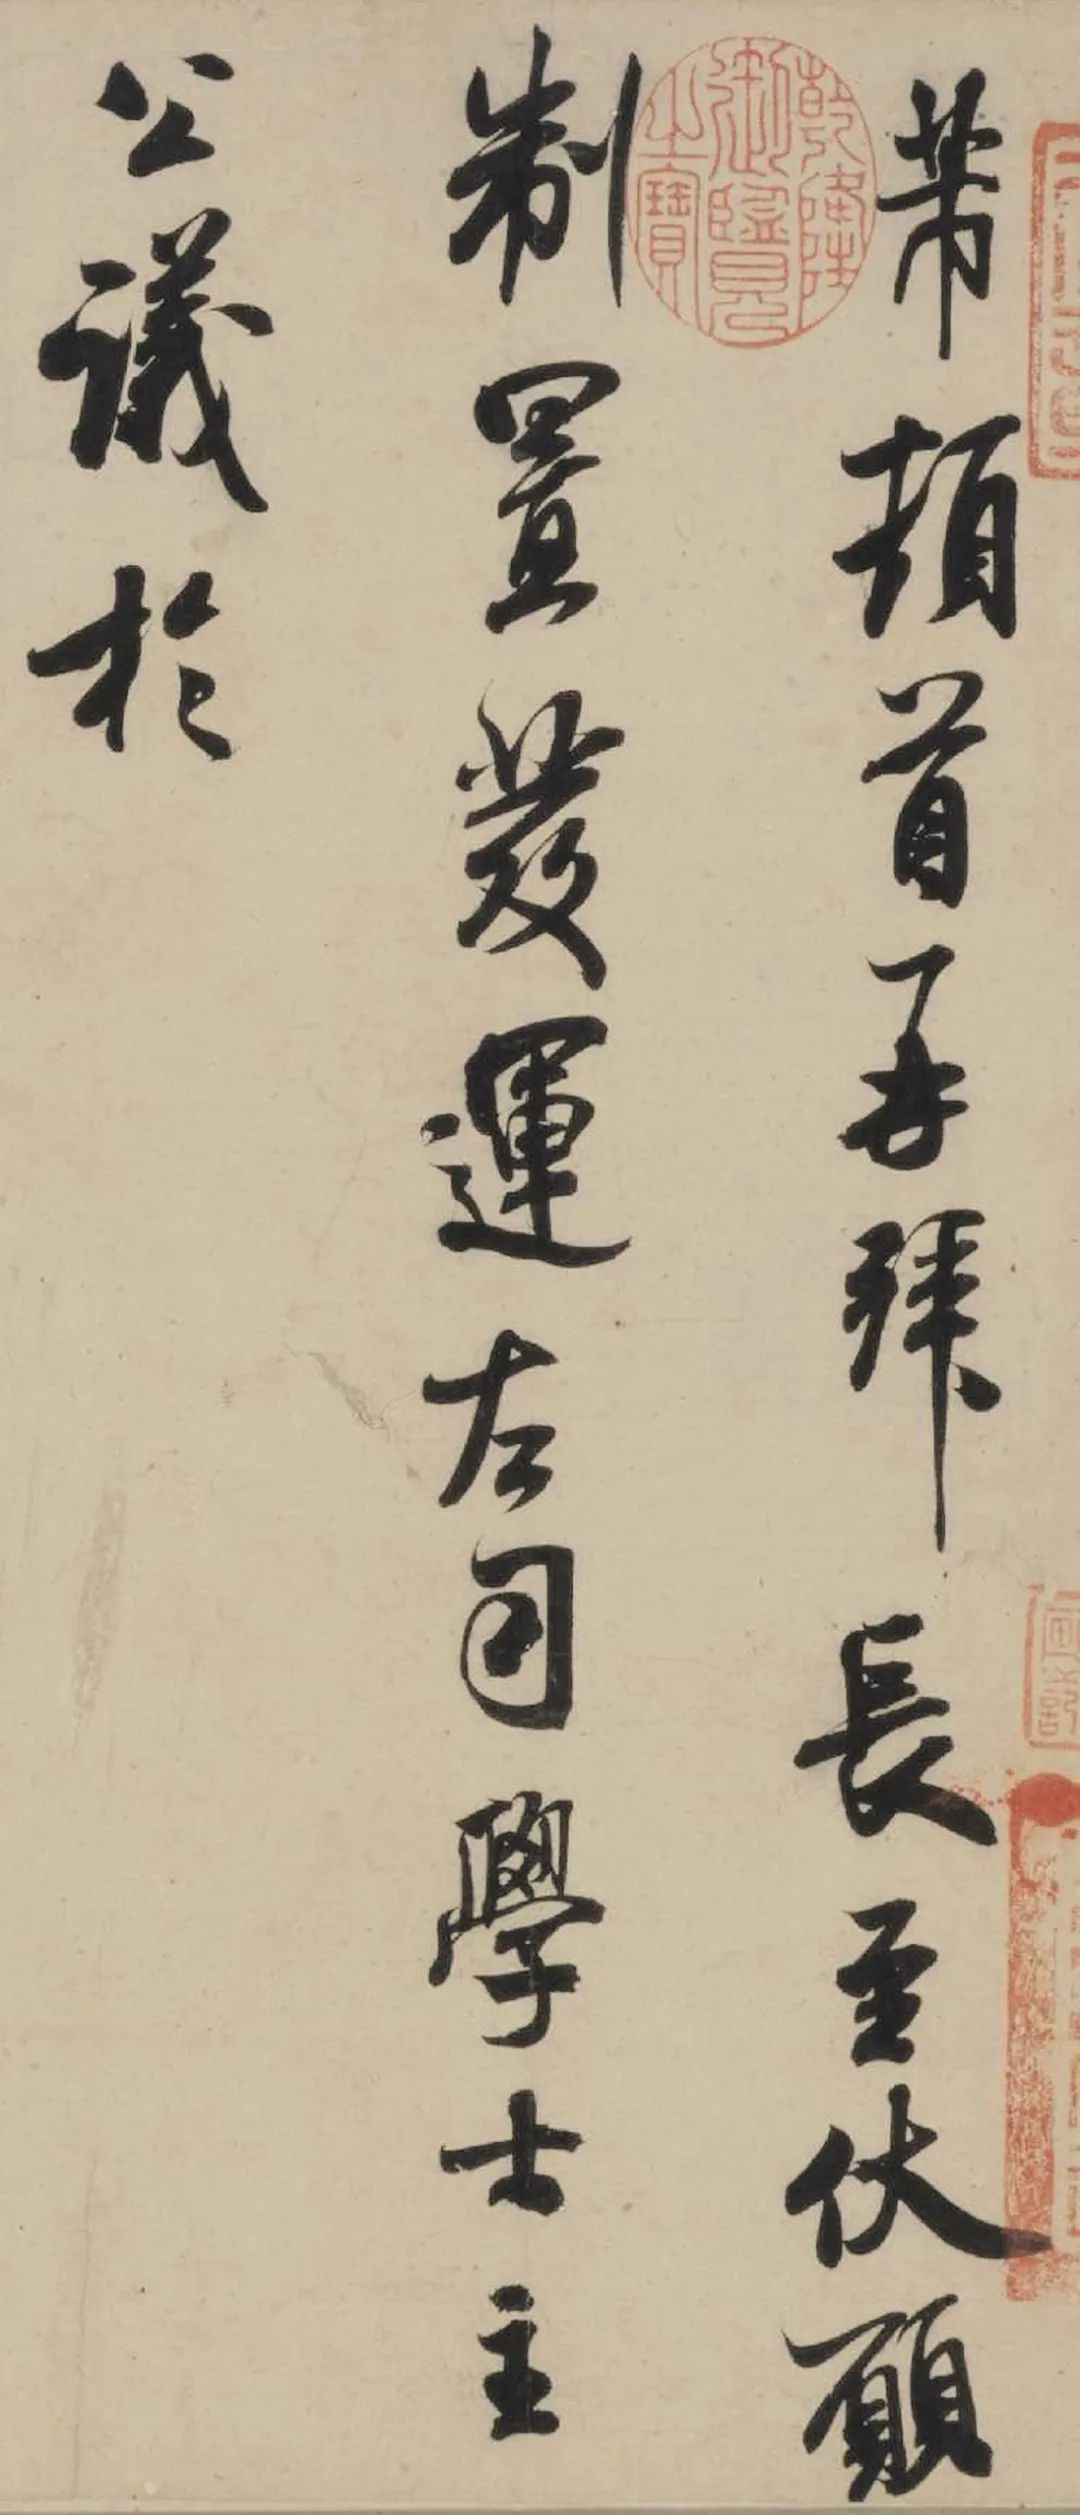 芾頓首再拜長至伏願
制置發運左司學士主
公議於
乾隆御覽之寶